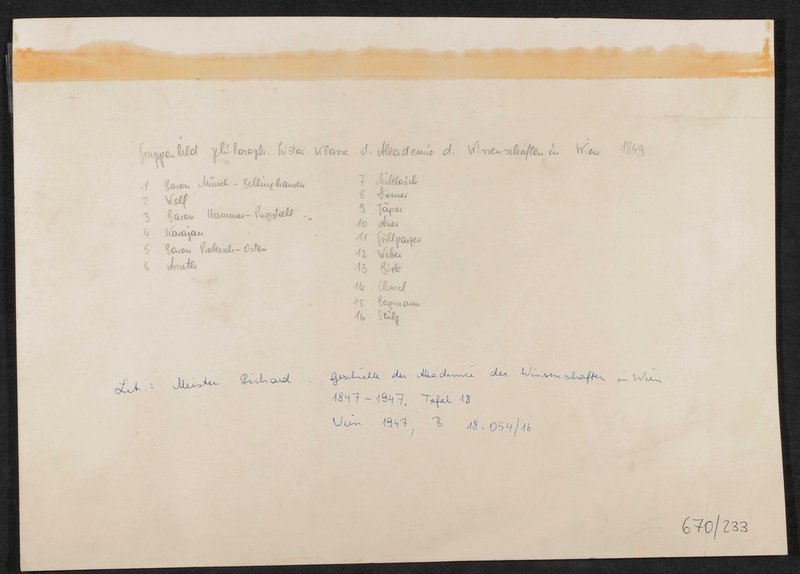 Gruppenbild philosoph. histor. Klasse d. Akademie d. Wissenschaften in Wien 1849
1 Baron Münch-Bellinghausen
2 Wolf
3 Baron Hammer-Purgstall
4 Karajan
5 Baron Prokesch-Osten
6 Arneth
7 Miklosich
8
9 Jäger
10 Auer
11 Grillparzer
12 Weber
13 Birk
14 Chmel
15 Bergmann
16 Stülz
Lit.: Meister Richard: Geschichte der Akademie der Wissenschaften in Wien
1847-1947, Tafel 18
Wien 1947, B 18.054/16
670/233